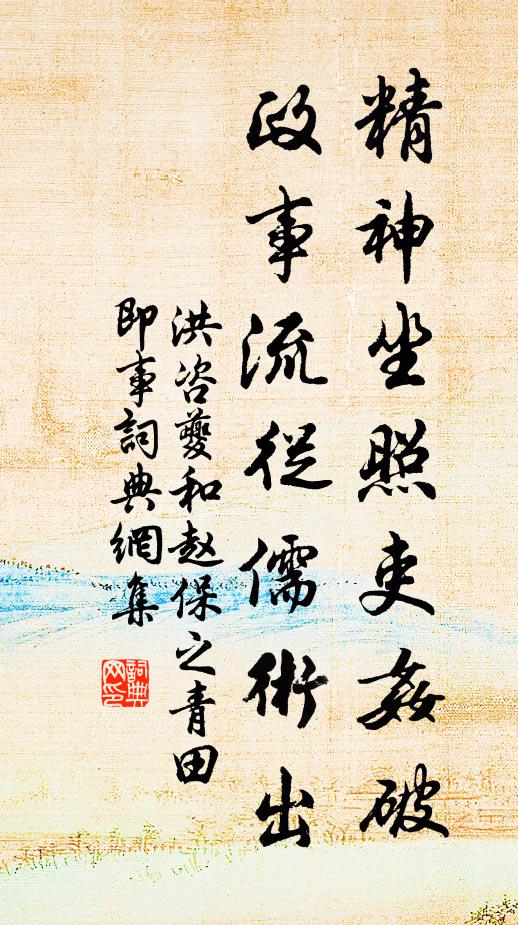 精神坐照吏姦破
政事流從儒術出
洪咨夔和赵保之青田
即事詞典網集
詞典網印